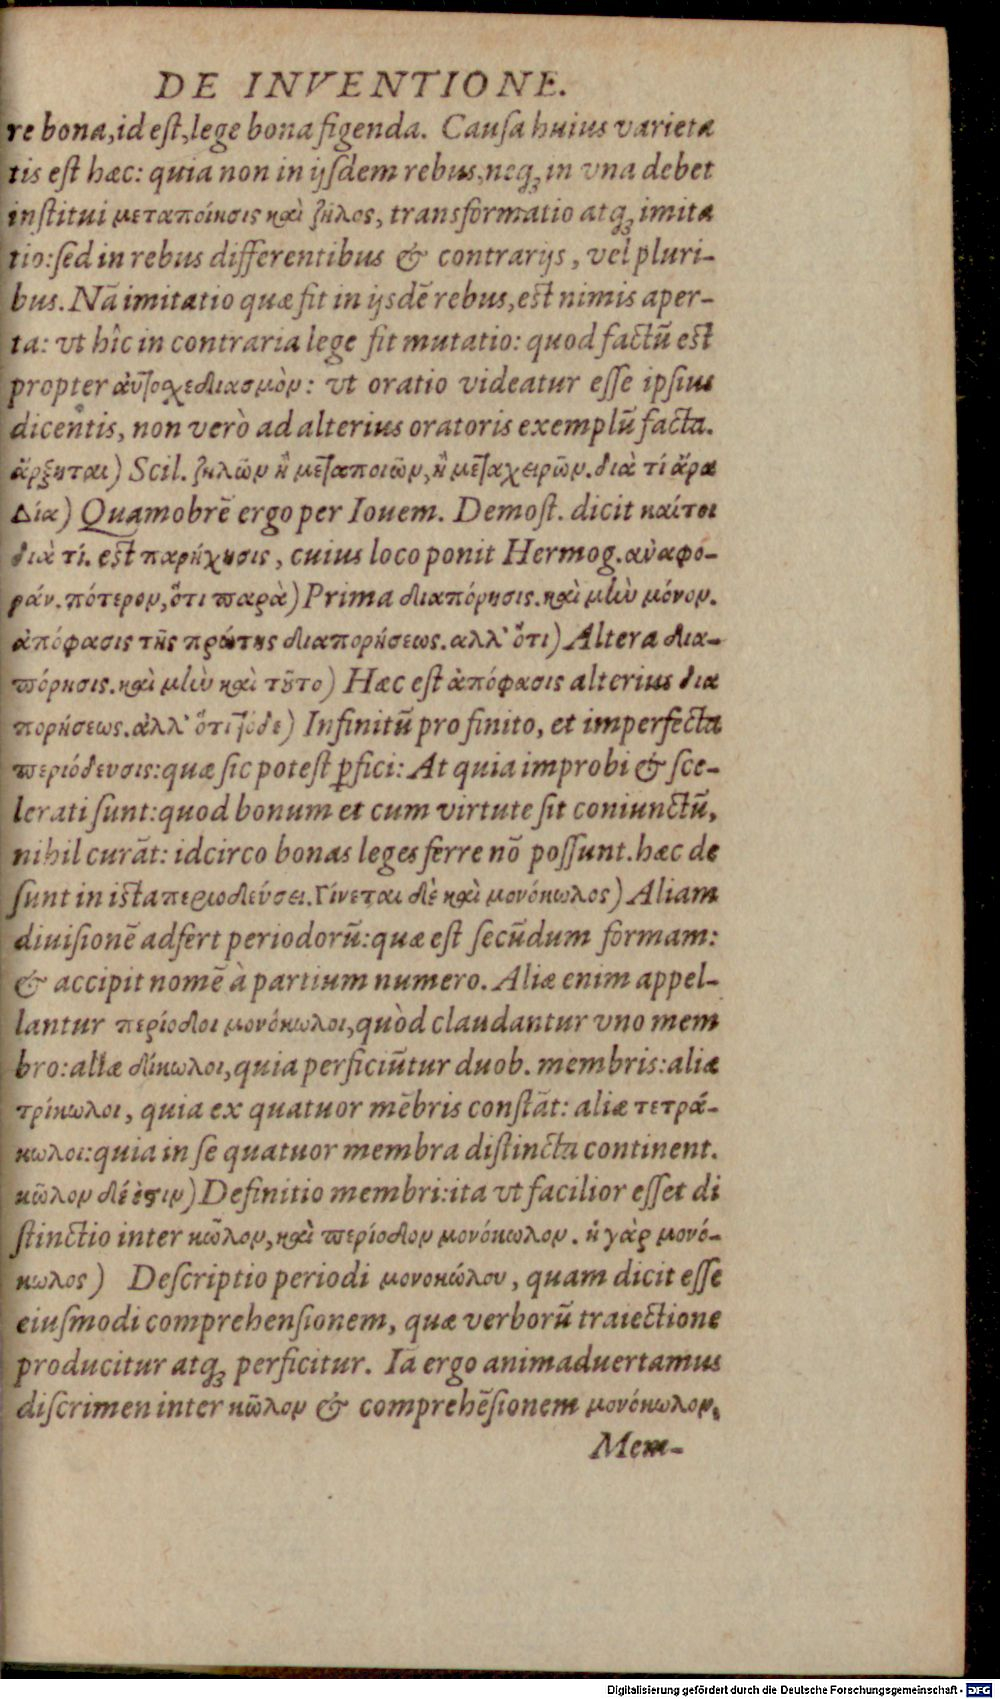 DE INVENTIONE.
re bona, id est, lege bona figenda. Causa huius varieta
tis est hæc: quia non in ijsdem rebus, neq; in vna debet
institui μεταποίησις καὶ ζῆλος, transformatio atq; imita
tio: sed in rebus differentibus & contrarijs, vel pluri-
bus. Nā imitatio quæ fit in ijsdē rebus, est nimis aper-
ta: vt hîc in contraria lege fit mutatio: quod factū est
propter αὐτοσχεδιασμὸν: vt oratio videatur esse ipsius
dicentis, non verò ad alterius oratoris exemplū facta.
ἄρξηται) Scil. ζηλῶν ἢ μεταποιῶν, ἢ μεταχειρῶν. διὰ τί ἄρα
Δία) Quamobrē ergo per Iouem. Demost. dicit καίτοι
διὰ τί. est παρήχησις, cuius loco ponit Hermog. ἀναφο-
ράν. πότερον, ὅτι παρὰ) Prima διαπόρησις. καὶ μὴν μόνον.
ἀπόφασις τῆς πρώτης διαπορήσεως. ἀλλ' ὅτι) Altera δια-
πόρησις. καὶ μὴν καὶ τοῦτο) Hæc est ἀπόφασις alterius δια
πορήσεως. ἀλλ' ὅτι τόδε) Infinitū pro finito, et imperfecta
περιόδευσις: quæ sic potest ꝑfici: At quia improbi & sce-
lerati sunt: quod bonum et cum virtute sit coniunctū,
nihil curāt: idcirco bonas leges ferre nō possunt. hæc de
sunt in ista περιοδεύσει. Γίνεται δὲ καὶ μονόκωλος) Aliam
diuisionē adfert periodorū: quæ est secūdum formam:
& accipit nomē à partium numero. Aliæ enim appel-
lantur περίοδοι μονόκωλοι, quòd claudantur vno mem
bro: aliæ δίκωλοι, quia perficiūtur duob. membris: aliæ
τρίκωλοι, quia ex quatuor mēbris constāt: aliæ τετρά-
κωλοι: quia in se quatuor membra distincta continent.
κῶλον δέ ἐστιν) Definitio membri: ita vt facilior esset di
stinctio inter κῶλον, καὶ περίοδον μονόκωλον. ἡ γὰρ μονό-
κωλος) Descriptio periodi μονοκώλου, quam dicit esse
eiusmodi comprehensionem, quæ verborū traiectione
producitur atq; perficitur. Iā ergo animaduertamus
discrimen inter κῶλον & comprehēsionem μονόκωλον.
Mem-
Digitalisierung gefördert durch die Deutsche Forschungsgemeinschaft - DFG